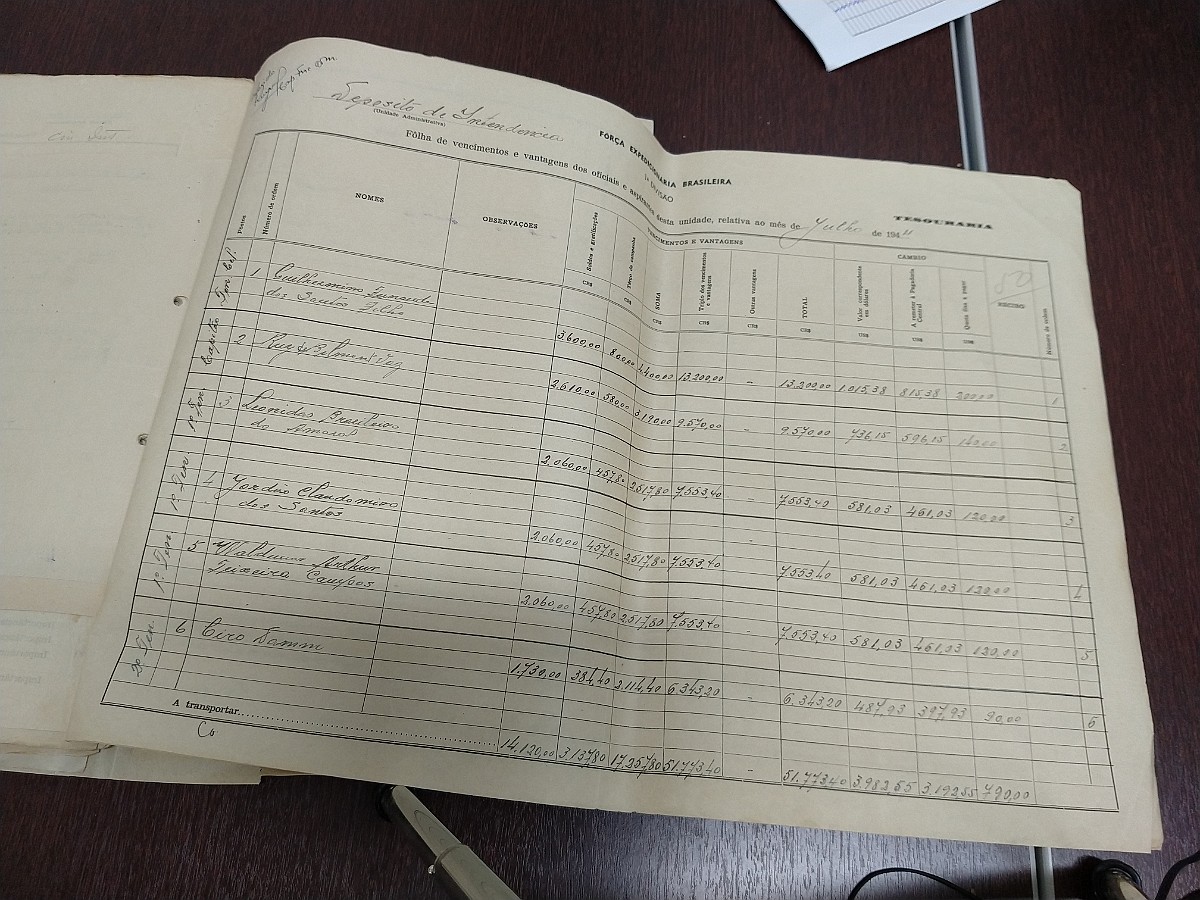 Deposito de Intendencia
(Unidade Administrativa)
FÔRÇA EXPEDICIONÁRIA BRASILEIRA
1ª DIVISÃO
TESOURARIA
Fôlha de vencimentos e vantagens dos oficiais e aspirantes desta unidade, relativa ao mês de Julho de 1944
Postos
Número de ordem
NOMES
OBSERVAÇÕES
VENCIMENTOS E VANTAGENS
Soldos e gratificações
CR$
Terço de campanha
CR$
SOMA
CR$
Triplo dos vencimentos e vantagens
CR$
Outras vantagens
CR$
TOTAL
CR$
CAMBIO
Valor correspondente em dólares
US$
A remeter à Pagadoria Central
US$
Quota fixa a pagar
US$
RECIBO
Número de ordem
Ten Cel 1 Guilhermino Fernandes
dos Santos Filho
3.600,00 800,00 4.400,00 13.200,00 - 13.200,00 1.015,38 815,38 200,00 1
Capitão 2 Ruy de Belmont Vaz
2.610,00 580,00 3.190,00 9.570,00 - 9.570,00 736,15 596,15 140,00 2
1º Ten 3 Leonidas Brasileiro
do Amaral
2.060,00 457,80 2517,80 7.553,40 - 7.553,40 581,03 461,03 120,00 3
1º Ten 4 Jordão Claudomiro
dos Santos
2.060,00 457,80 2517,80 7.553,40 - 7.553,40 581,03 461,03 120,00 4
1º Ten 5 Waldemar Arthur
Teixeira Campos
2.060,00 457,80 2.517,80 7.553,40 - 7.553,40 581,03 461,03 120,00 5
2º Ten 6 Ciro Damm
1.730,00 384,40 2.114,40 6.343,20 - 6.343,20 487,93 397,93 90,00 6
A transportar 14.120,00 3.137,80 17.257,80 51.773,40 - 51.773,40 3.982,55 3.192,55 790,00